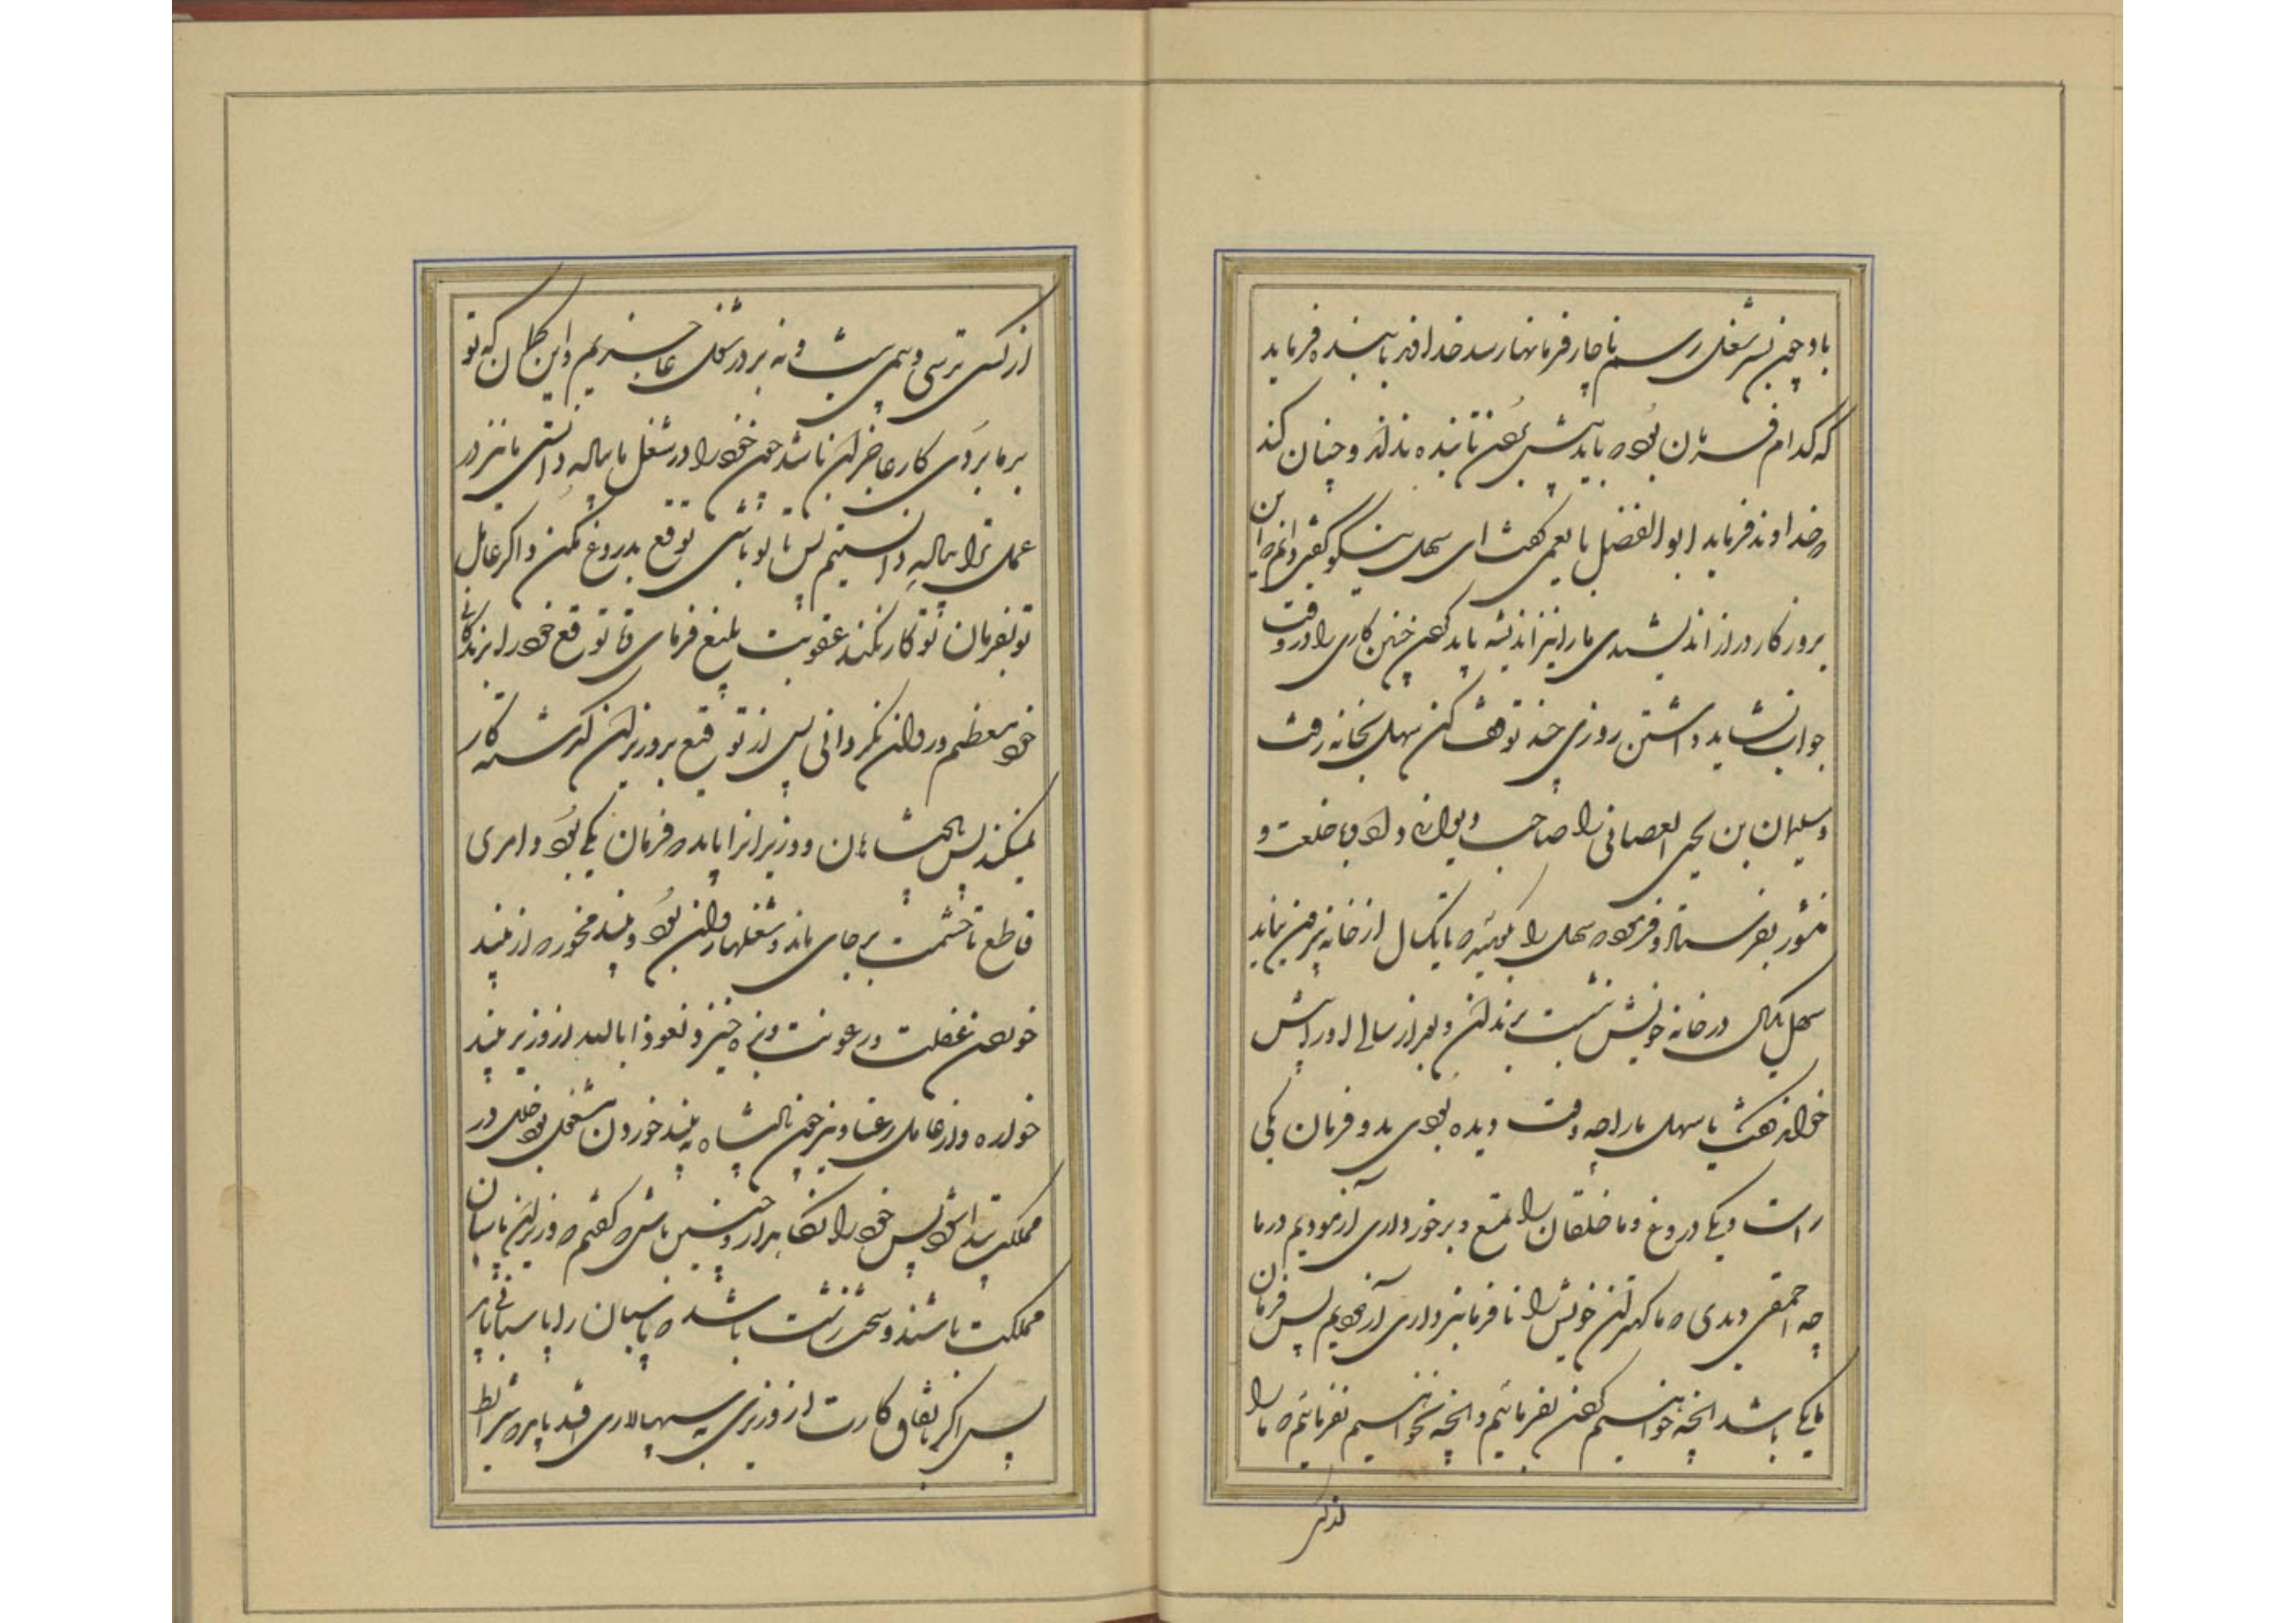 باد و چون بسر شغل رسم ناچار فرمانها رسد خداوند با بنده فرماید
که کدام فرمان بود که باید پیش بردن تا بنده بداند و چنان کند
که خداوند فرماید ابوالفضل بلعمی گفت ای سهل نیکو گفتی دانم که این
بروزگار دراز اندیشیدی ما را نیز اندیشه باید کردن چنین کاری را در وقت
جواب نشاید داشتن روزی چند توقف کن سهل بخانه رفت
و سلیمان بن یحیی الصغانی را صاحب دیوانی داد و با خلعت و
منشور بفرستاد و فرمود که سهل را بگوئید که تا یکسال از خانه بیرون نیاید
سهل یکسال در خانه خویش نشست بزندان و بعد از سالی او را پیش
خواند گفت یا سهل ما را چه وقت دیده بودی بدو فرمان یکی
راست و یکی دروغ و ما خلقان را بتیغ و برخورداری آزمودیم در ما
چه احمقی دیدی که ما کهتران خویش را نافرمانبرداری آموزیم پس فرمان
ما یکی باشد آنچه خواهیم کردن بفرمائیم و آنچه نخواهیم نفرمائیم که ما را
از کس
از کس ترسی و بیمی نیست و نه بر در شغل عاجزیم و این گمان که تو
بر ما بردی کار عاجزان باشد چون خود را در شغل ما پیاله دانستی ما نیز در
عمل ترا پیاله دانستیم پس تا تو باشی توقیع بدروغ مکن و اگر عامل
تو بفرمان تو کار نکند عقوبت بلیغ فرمای تا توقیع خود را بزندگانی
خود معظم و روان نگردانی پس از تو توقیع بر وزیران گذشته کار
نمیکند پس پادشاهان و وزیرانرا باید که فرمان یکی بود و امری
قاطع تا حشمت بر جای ماند و شغلها روان بود و نبید مخور که از نبید
خوردن غفلت و رعونت و بزه خیزد و نعوذا بالله از وزیر نبید
خواره و از عامل رعنا و نیز چون پادشاه به نبید خوردن مشغول بود خلل در
مملکت پیدا شود پس خود را نگاهدار و چنین باش که گفتم که وزیران پاسبان
مملکت باشند و سخت زشت باشد که پاسبان را پاسبانی باید
پس اگر باتفاق کارت از وزیری به سپهسالاری افتد باید که شرائط